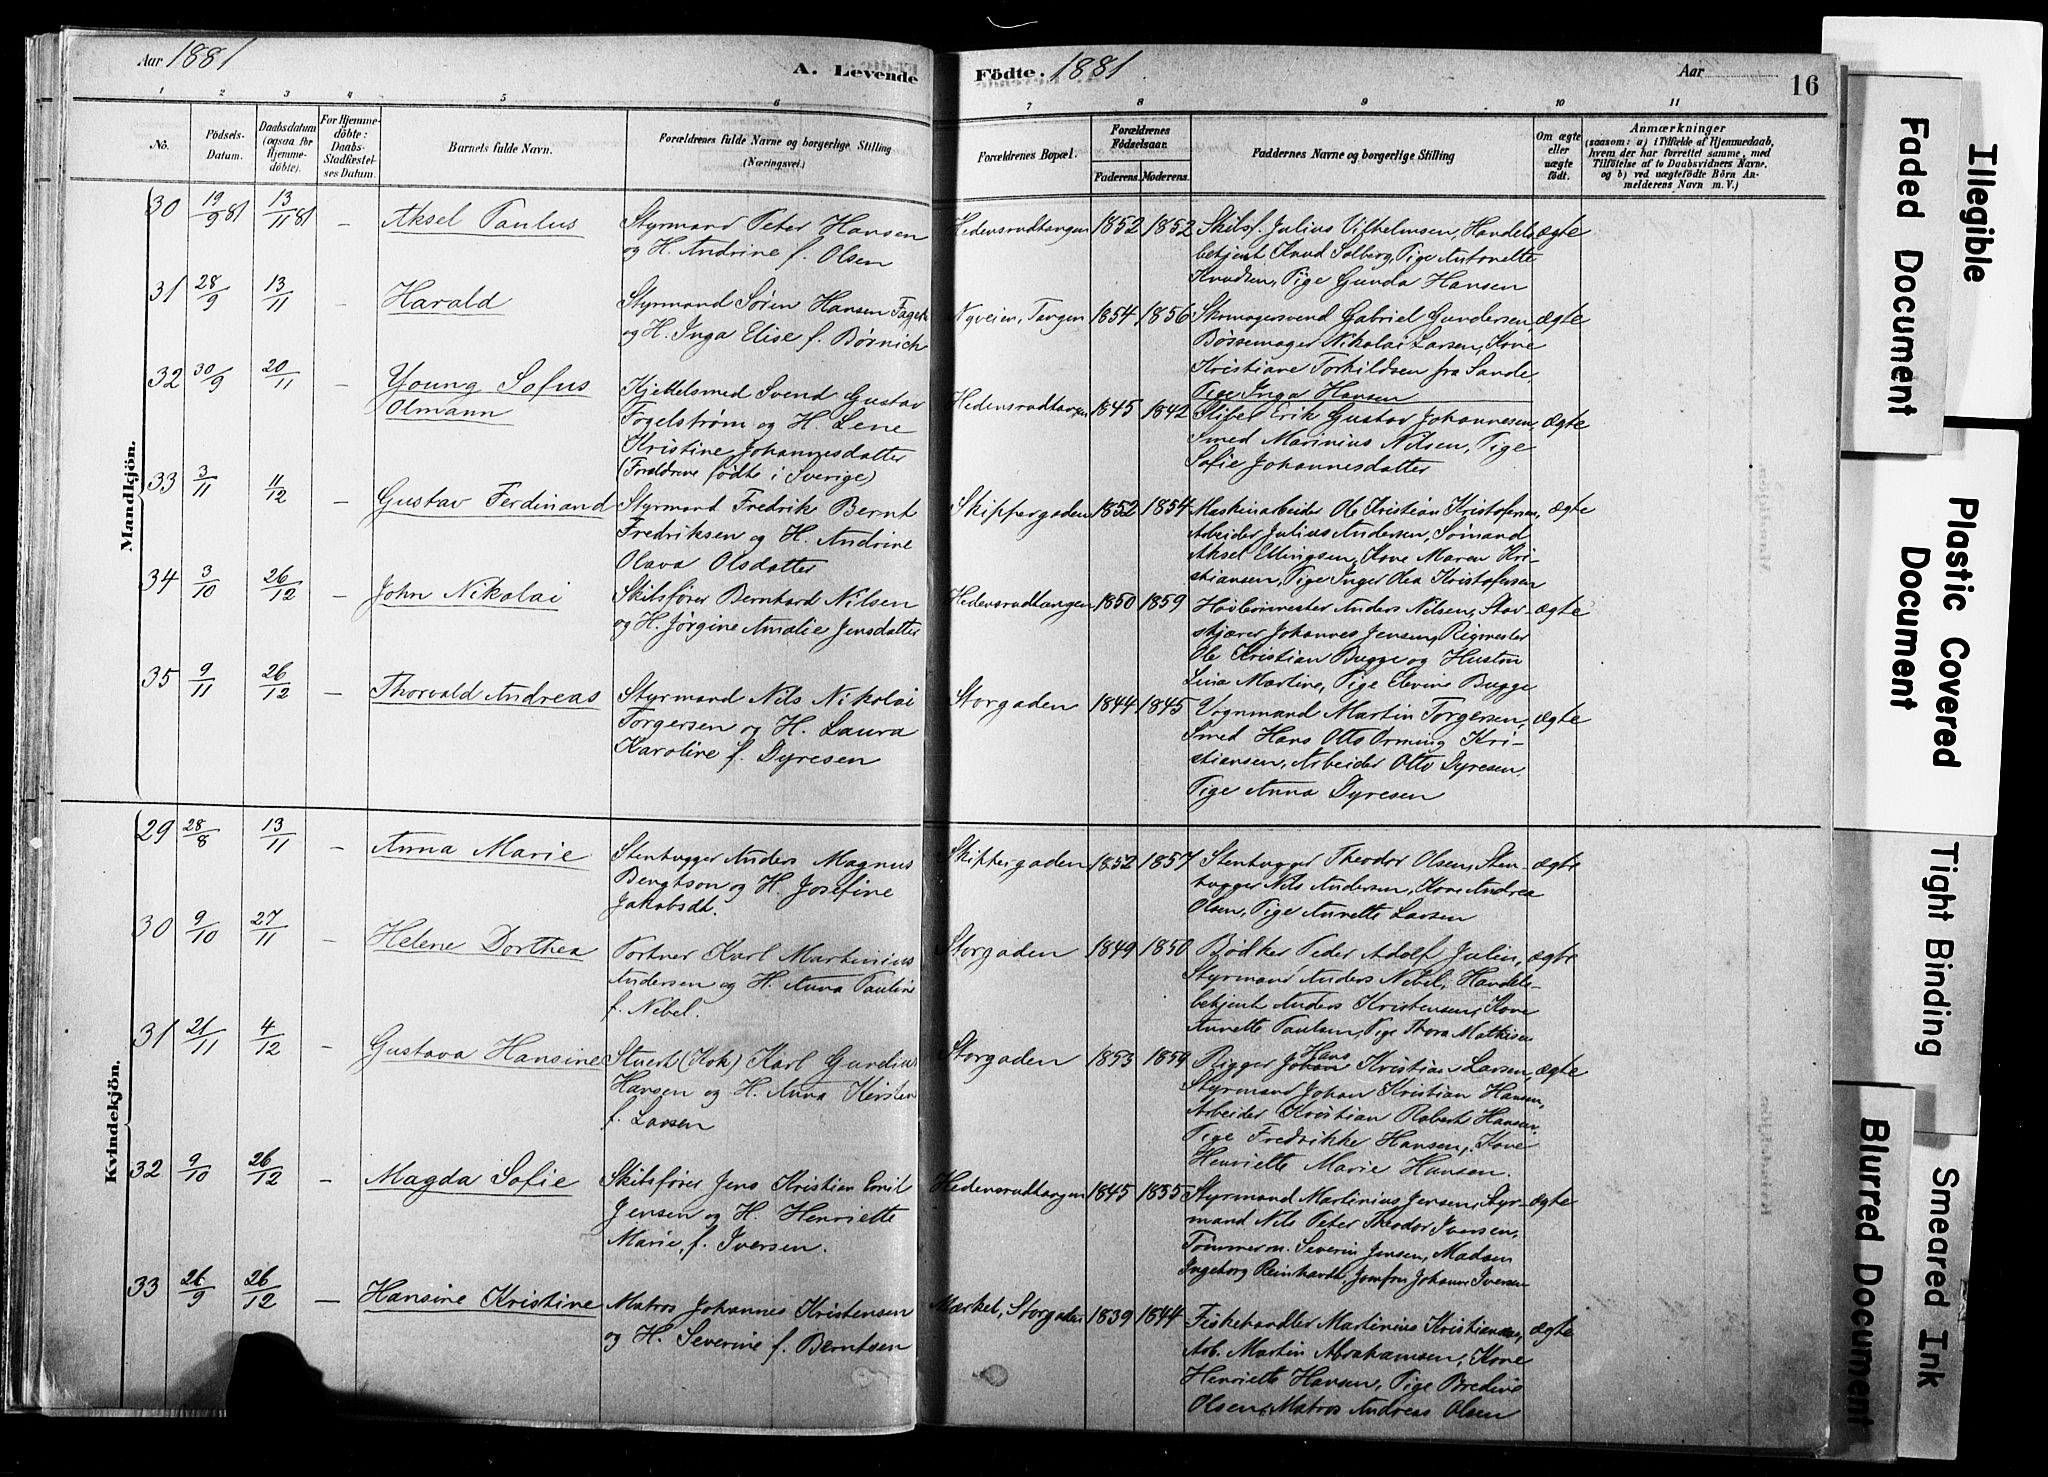 Aar 1881
A. Levende
1 2 3 4 5 6
No.
Födsels-
Datum.
Daabsdatum
(ogsaa for
Hjemme-
döbte).
For Hjemme-
döbte:
Daabs-
Stadfæstel-
ses Datum.
Barnets fulde Navn.
Forældrenes fulde Navne og borgerlige Stilling
(Næringsvei.)
Mandkjön.
30 19/9 81 13/11 81 – Aksel Paulus
Styrmand Peter Hansen
og H. Andrine f. Olsen
31 28/9 13/11 – Harald
Styrmand Søren Hansen
og H. Inga Elise f. Børnich
32 30/9 20/11 – Young Sofus
Olmann
Kjettelsmed Svend Gustav
Fogelstrøm og H. Lene
Kristine Johannesdatter
(Forældrene fødte i Sverige)
33 3/11 11/12 – Gustav Ferdinand
Styrmand Fredrik Bernt
Fredriksen og H. Andrine
Olava Olsdatter
34 3/10 26/12 – John Nikolai
Skibsfører Bernhard Nilsen
og H. Jørgine Amalie Jensdatter
35 9/11 26/12 – Thorvald Andreas
Styrmand Nils Nikolai
Torgersen og H. Laura
Karoline f. Dyresen
Kvindekjön.
29 28/8 13/11 – Anna Marie
Stenhugger Anders Magnus
Bengtson og H. Josefine
Jakobsdt.
30 9/10 27/11 – Helene Dorthea
Portner Karl Martinius
Andersen og H. Anna Pauline
f. Nebel.
31 21/11 4/12 – Gustava Hansine
Stuert (Kok) Karl
Hansen og H. Anna Kirstine
f. Larsen
32 9/10 26/12 – Magda Sofie
Skibsfører Jens Kristian Emil
Jensen og H. Henriette
Marie, f. Iversen.
33 26/9 26/12 – Hansine Kristine
Matros Johannes Kristensen
og H. Severine f. Berntsen
Födte. 1881
Aar
16
7 8 9 10 11
Forældrenes Bopæl.
Forældrenes
Födselsaar.
Faderens. Moderens.
Faddernes Navne og borgerlige Stilling
Om ægte
eller
uægte
födt.
Anmærkninger
(saasom: a) i Tilfælde af Hjemmedaab,
hvem der har forrettet samme, med
Tilföielse af to Daabsvidners Navne,
og b) ved uægtefödte Börn An-
melderens Navn m. V.)
Hedensrudtangen 1852 1852 Skibsf. Julius Vilhelmsen, Handels- ægte
betjent Knud Solberg, Pige Antonette
Knudsen, Pige Gunda Hansen
Nyveien, Tangen 1854 1856 Skomagersvend Gabriel Gundersen, ægte
Bøssemager Nikolai Larsen, Kone
Kristiane Torkildsen fra Sande,
Pige Inga Hansen
Hedensrudtangen 1845 1842 Sliber Erik Gustav Johannesen, ægte
Smed Marinius Nilsen, Pige
Sofie Johannesdatter
Skippergaden 1852 1854 Maskinarbeider Ole Kristian Kristofersen, ægte
Arbeider Julius Andersen, Sømand
Aksel Ellingsen, Kone Maren Kri-
stiansen, Pige Inger Olea Kristofersen
Hedensrudtangen 1850 1859 Høvlerimester Anders Nilsen, Stav- ægte
skjærer Johannes Jensen, Rigmester
Ole Kristian Bugge og Hustru
Lina Martine, Pige Elevine Bugge
Storgaden 1844 1845 Vognmand Martin Torgersen, ægte
Smed Hans Otto Orming Kri-
stiansen, Arbeider Otto Dyresen,
Pige Anna Dyresen
Skippergaden 1852 1857 Stenhugger Theodor Olsen, Sten- ægte
hugger Nils Andersen, Kone Andrea
Olsen, Pige Annette Larsen
Storgaden 1849 1850 Bødker Peder Adolf Julin, ægte
Styrmand Anders Nebel, Handels-
betjent Anders Kristensen, Kone
Annette Paulsen, Pige Thora Mathisen
Storgaden 1853 1859 Rigger Hans Kristian Larsen, ægte
Styrmand Johan Kristian Hansen,
Arbeider Kristian Robert Hansen,
Pige Fredrikke Hansen, Kone
Henriette Marie Hansen.
Hedensrudtangen 1845 1855 Styrmand Martinius Jensen, Styr- ægte
mand Nils Peter Theodor Iversen,
Tømmerm. Severin Jensen, Madam
Ingeborg Reinhardt, Jomfru Johanne Iversen
Mærket, Storgaden 1839 1844 Fiskehandler Martinius Kristiansen, ægte
Arb. Martin Abrahamsen, Kone
Henriette Hansen, Pige
Olsen, Matros Andreas Olsen
Illegible
Faded Document
Plastic Covered
Document
Tight Binding
Smeared Ink
Blurred Document